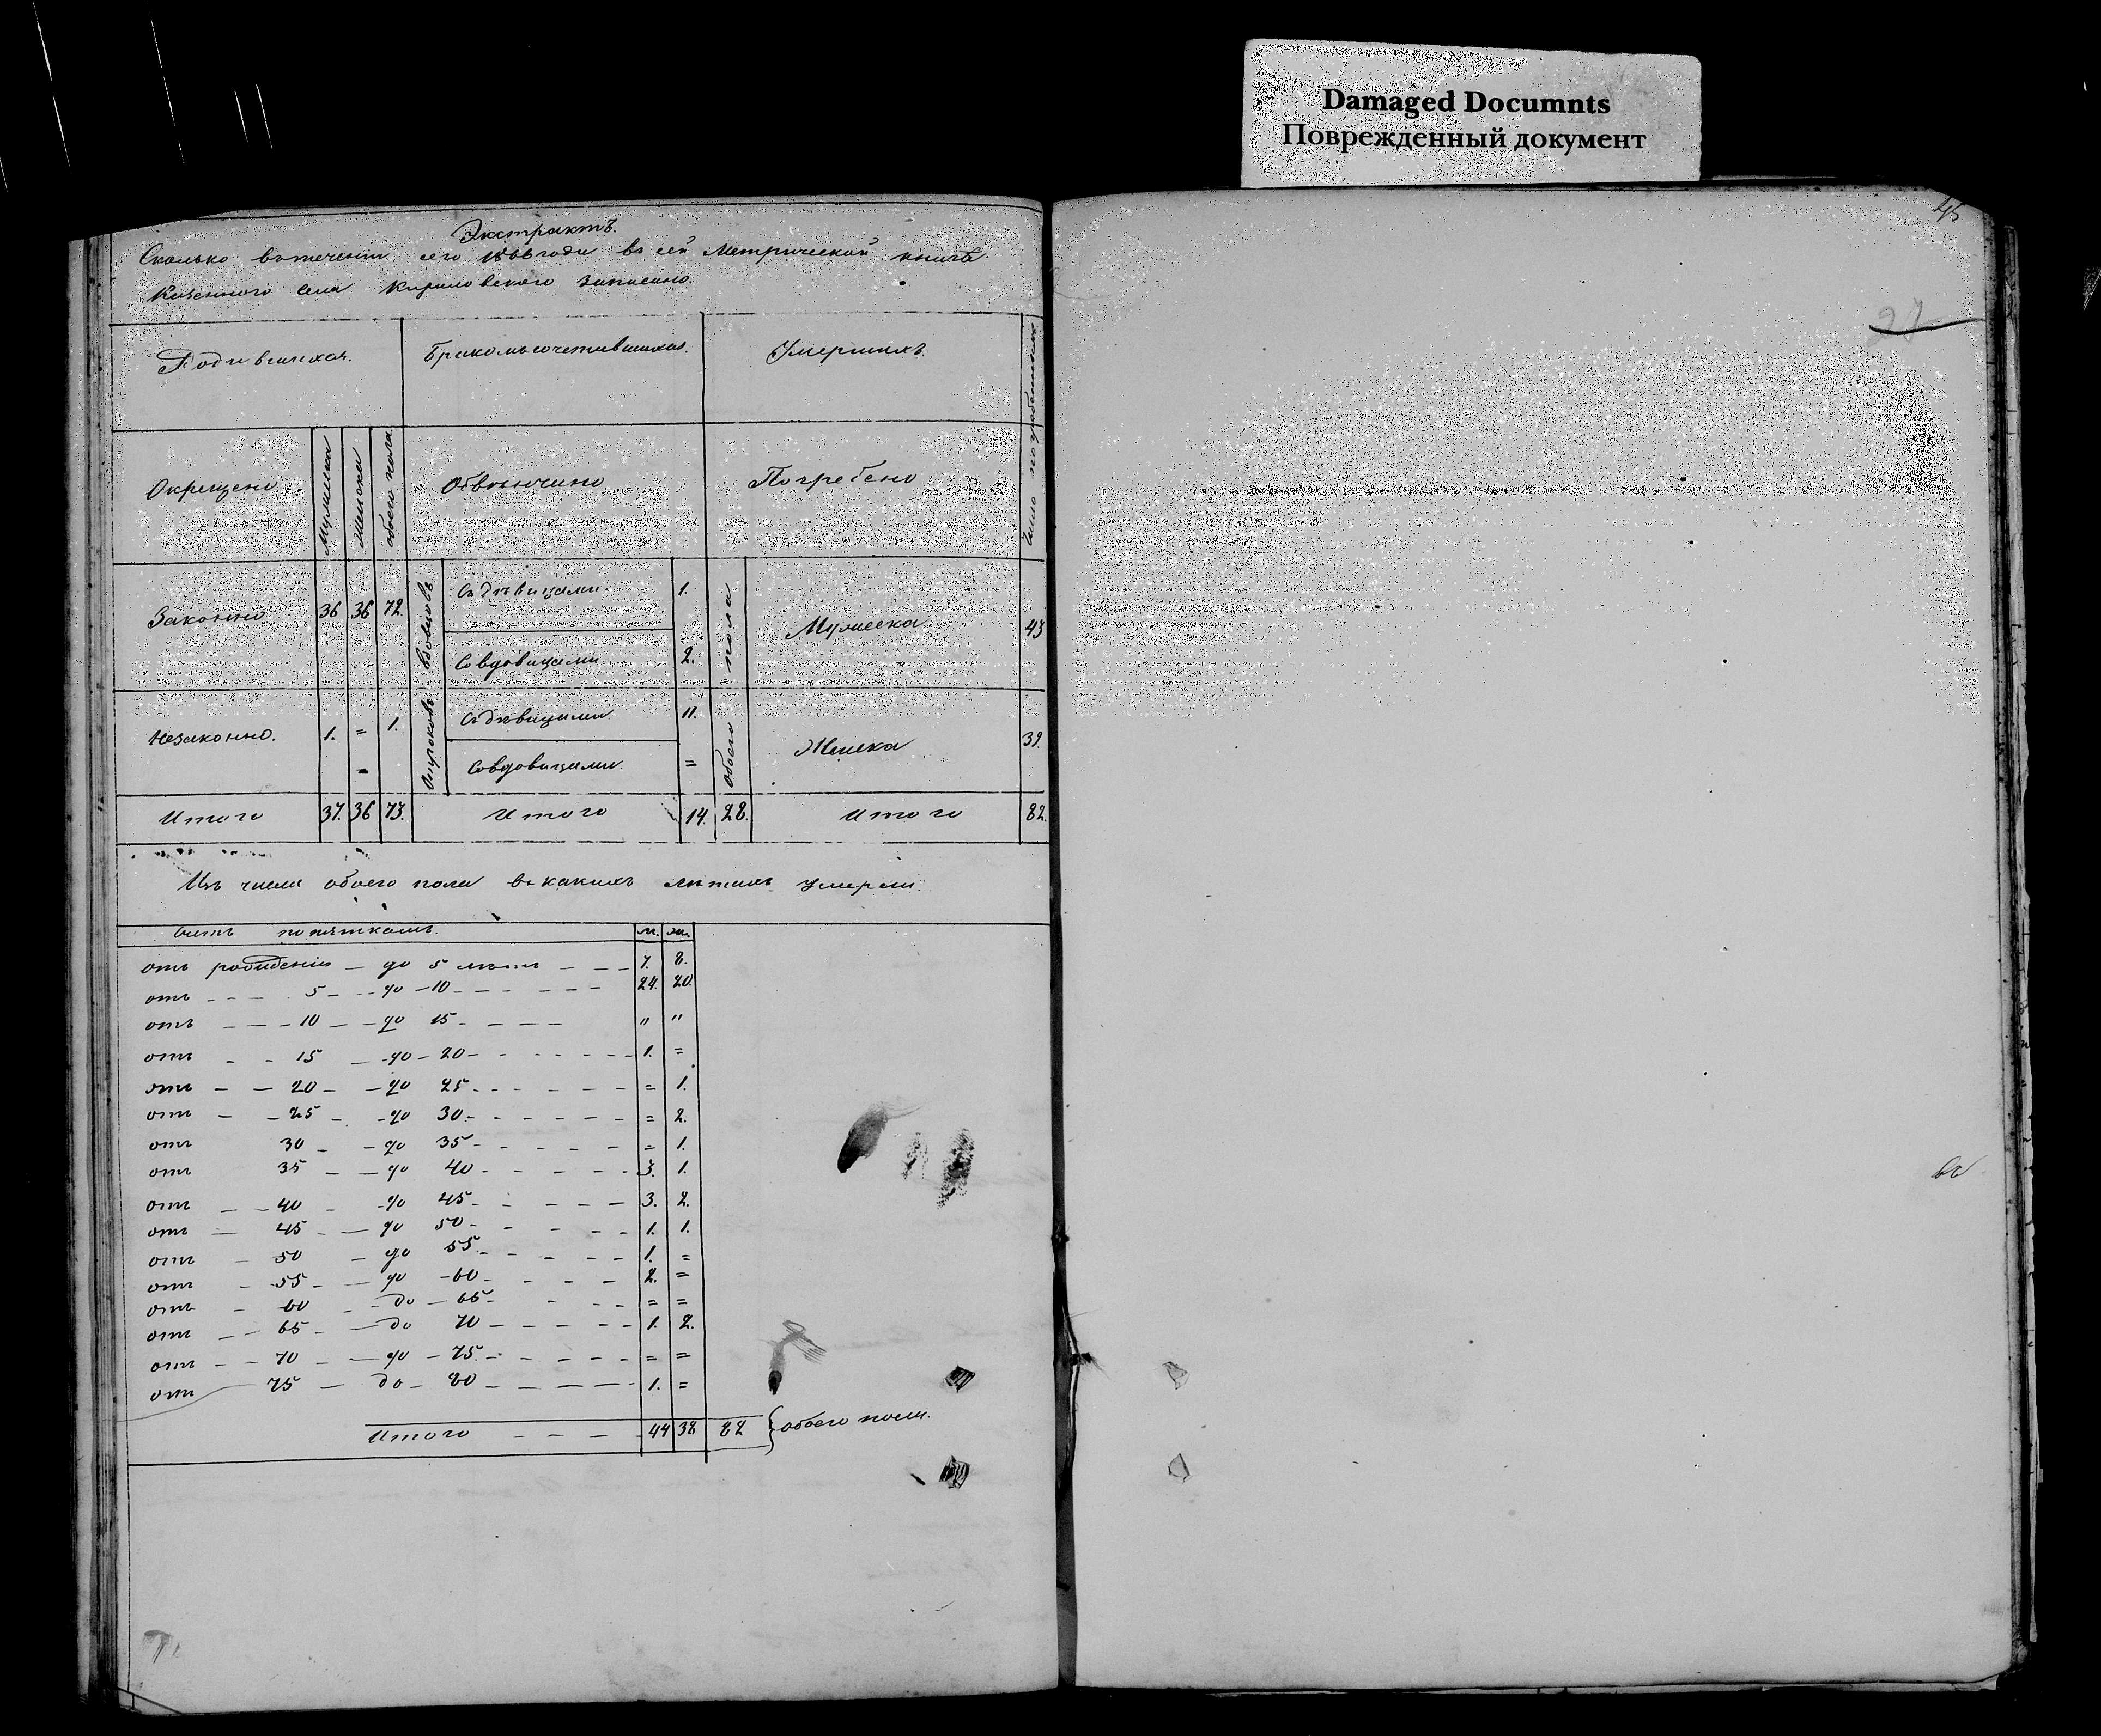 Damaged Documnts
Поврежденный документ
45
27
Экстрактъ.
Сколько втечении сего 1866 года въ сей Метрической книге
Казенного Села Кириловского записано.
Родившихся. Бракомъ сочетавшихся. Умершихъ. Число погребенныхъ
Окрещено Мужеска Женска обоего пола Обвенчано Погребено
Законно 36 36 72. вдовцовъ Съ девицами 1. обоего пола Мужеска 43
Со вдовицами 2.
Незаконно. 1. = 1. Отроковъ Съ девицами 11. Женска 39.
Со вдовицами. =
Итого 37. 36 73. Итого 14. 28. Итого 82.
Изъ числа обоего пола въ какихъ летахъ умерли.
Счетъ по пяткамъ. м. ж.
отъ рождения — до 5 летъ — — — 7. 8.
отъ — — — 5 — — до — 10 — — — 24. 20.
отъ — — — 10 — — до 15 — — — — " "
отъ — — 15 — до — 20 — — — — 1. =
отъ — — 20 — — до 25 — — — — = 1.
отъ — — 25 — — до 30 — — — — = 2.
отъ 30 — — до 35 — — — — = 1.
отъ 35 — — до 40 — — — — 3. 1.
отъ — — 40 — до 45 — — — — 3. 2.
отъ — 45 — — до 50 — — — — 1. 1.
отъ — 50 — до 55 — — — — 1. =
отъ — 55 — — до — 60 — — — — 2. =
отъ — 60 — — до — 65 — — — = =
отъ — — 65 — — до 70 — — — — 1. 2.
отъ — — 70 — — до — 75 — — — — = =
отъ 75 — до — 80 — — — — 1. =
Итого — — — — 44 38 82 } обоего пола.